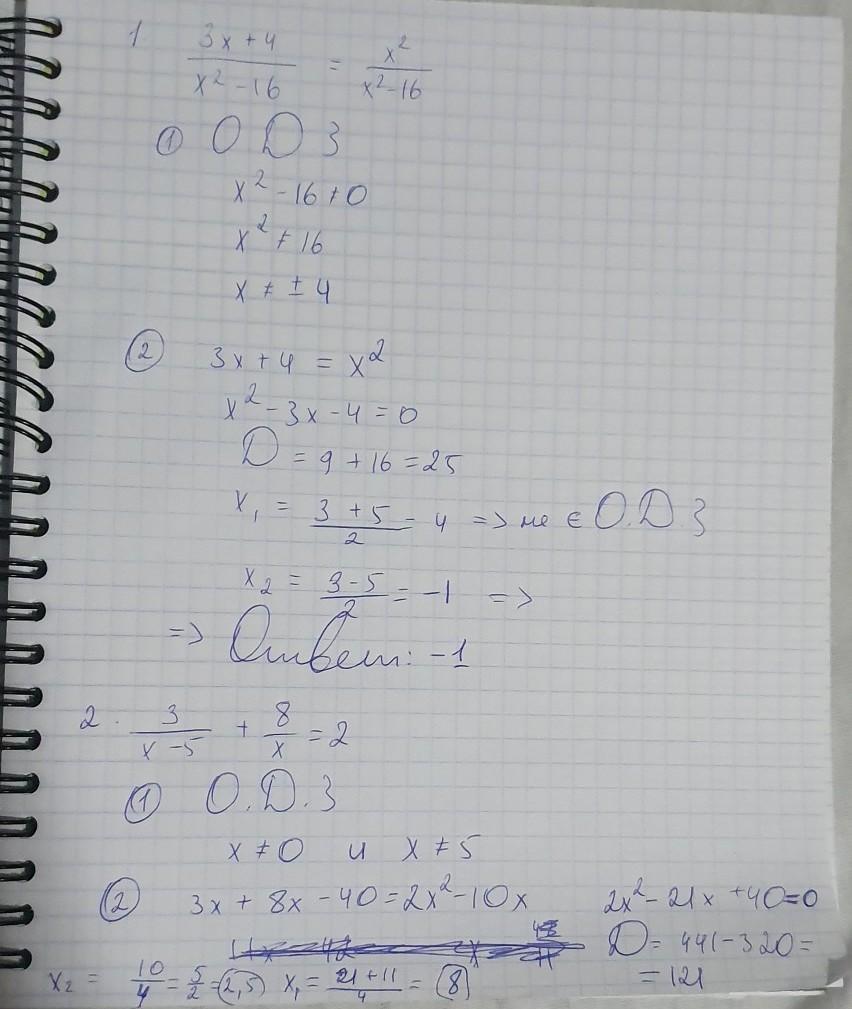 1 (3x+4)/(x²-16) = x²/(x²-16)
① ОДЗ
x²-16≠0
x²≠16
x≠±4
② 3x+4=x²
x²-3x-4=0
D=9+16=25
x₁=(3+5)/2=4 => не ∈ О.Д.З
x₂=(3-5)/2=-1 =>
=> Ответ: -1
2. 3/(x-5) + 8/x = 2
① О.Д.З
x≠0 и x≠5
② 3x+8x-40=2x²-10x 2x²-21x+40=0
D=441-320=
x₂=10/4=5/2=2,5 x₁=(21+11)/4=8 =121